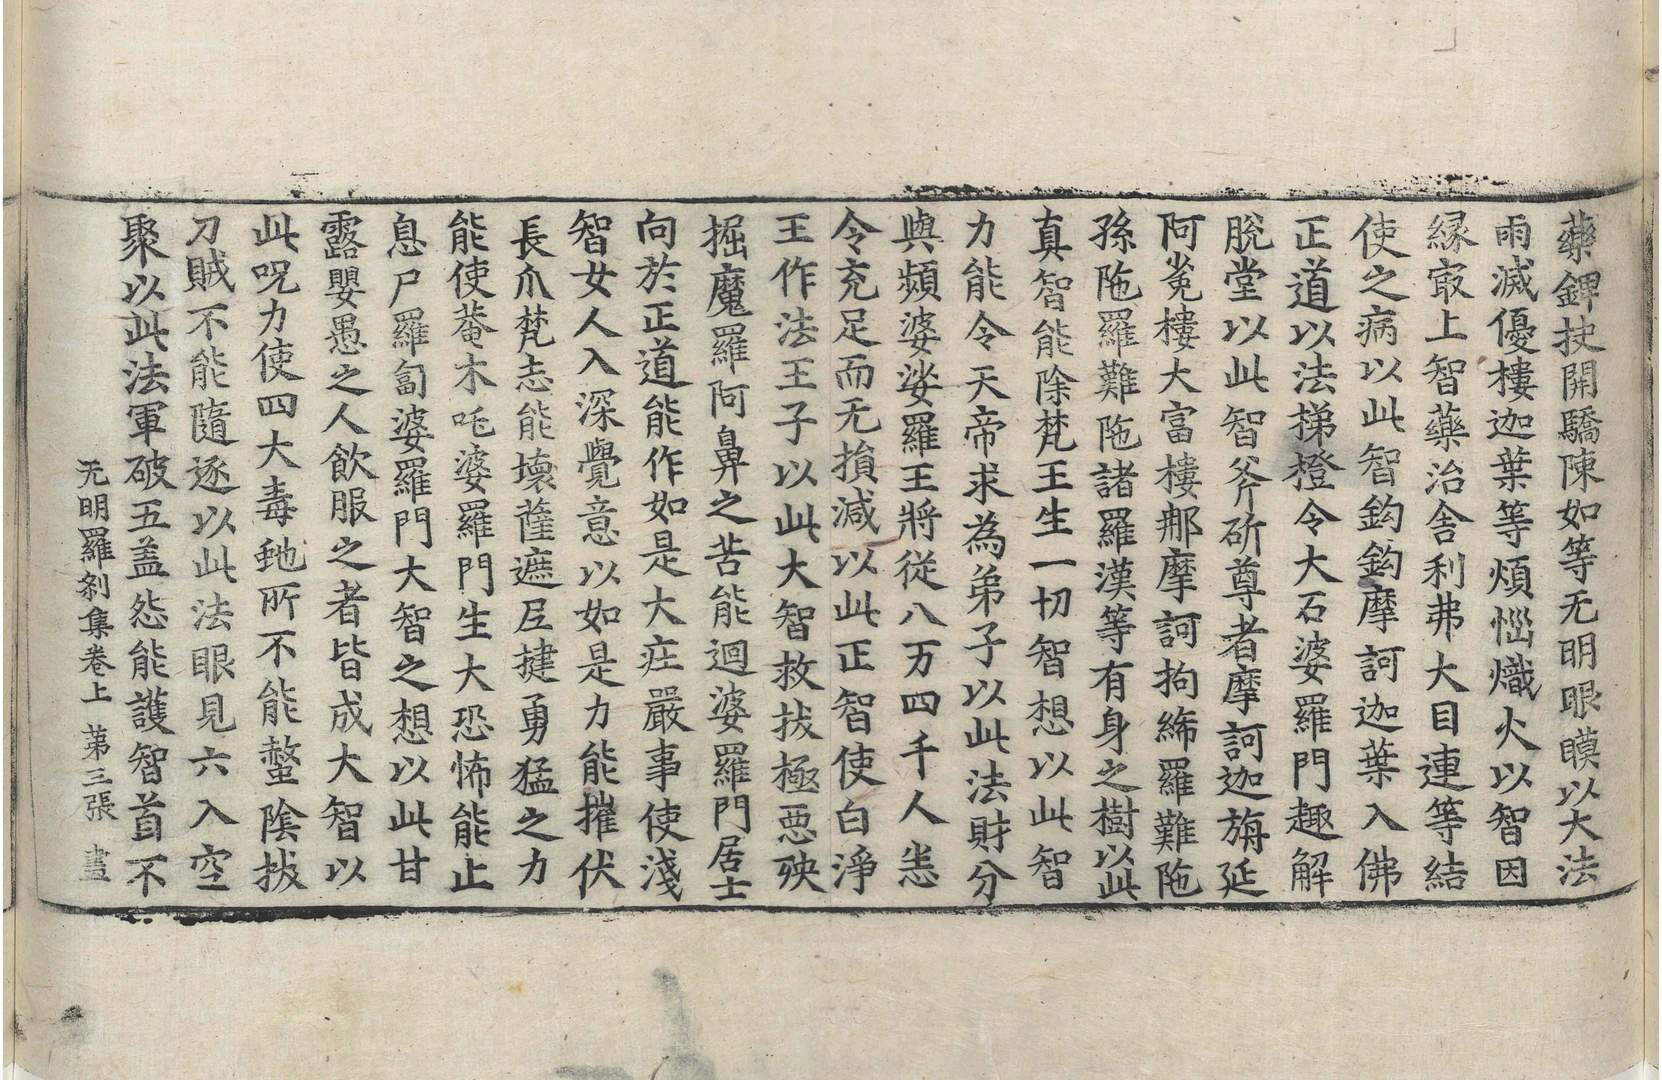 藥錍抉開驕陳如等无明眼瞙以大法
雨滅優樓迦葉等煩惱熾火以智因
緣㝡上智藥治舍利弗大目連等結
使之病以此智鈎鈎摩訶迦葉入佛
正道以法梯橙令大石婆羅門趣解
脫堂以此智斧斫尊者摩訶迦旃延
阿㝹樓大富樓那摩訶拘絺羅難陁
孫陁羅難陁諸羅漢等有身之樹以此
真智能除梵王生一切智想以此智
力能令天帝求為弟子以此法財分
與頻婆娑羅王將從八万四千人恙
令充足而无損減以此正智使白淨
王作法王子以此大智救拔極惡殃
掘魔羅阿鼻之苦能迴婆羅門居士
向於正道能作如是大疘嚴事使淺
智女人入深覺意以如是力能摧伏
長爪梵志能壞薩遮𡰱揵勇猛之力
能使菴木吒婆羅門生大恐怖能止
息尸羅匐婆羅門大智之想以此甘
露嬰愚之人飲服之者皆成大智以
此呪力使四大毒虵所不能螫陰拔
刀賊不能隨逐以此法眼見六入空
聚以此法軍破五盖怨能護智首不
无明羅刹集卷上 第三張 畫